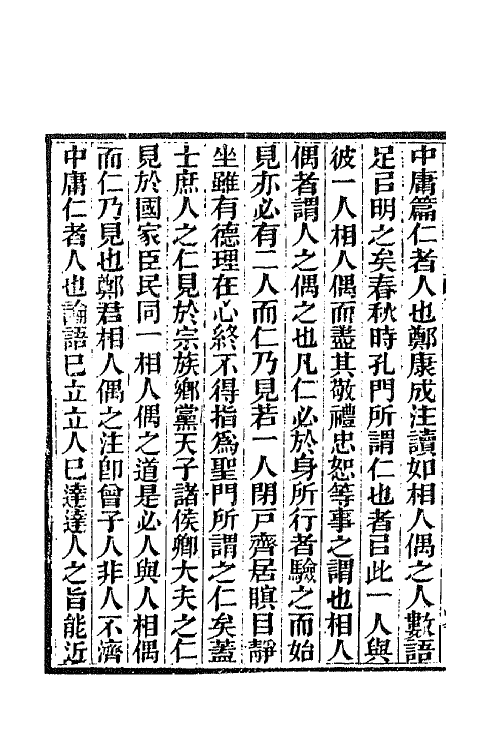 中庸篇仁者人也鄭康成注讀如相人偶之人數語
足㠯明之矣春秋時孔門所謂仁也者㠯此一人與
彼一人相人偶而盡其敬禮忠恕等事之謂也相人
偶者謂人之偶之也凡仁必於身所行者驗之而始
見亦必有二人而仁乃見若一人閉戸齊居瞑目靜
坐雖有德理在心終不得指爲聖門所謂之仁矣蓋
士庶人之仁見於宗族鄉黨天子諸侯卿大夫之仁
見於國家臣民同一相人偶之道是必人與人相偶
而仁乃見也鄭君相人偶之注卽曾子人非人不濟
中庸仁者人也論語己立立人己達達人之旨能近